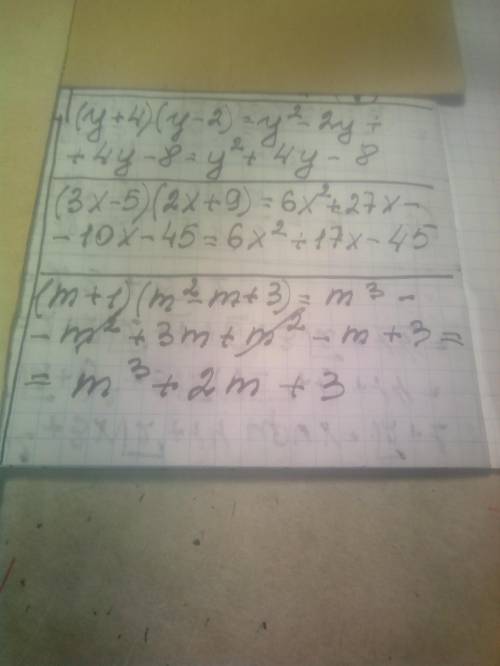 (y+4)(y-2)=y²-2y+
+4y-8=y²+4y-8
(3x-5)(2x+9)=6x²+27x-
-10x-45=6x²+17x-45
(m+1)(m²-m+3)=m³-
-m²+3m+m²-m+3=
=m³+2m+3